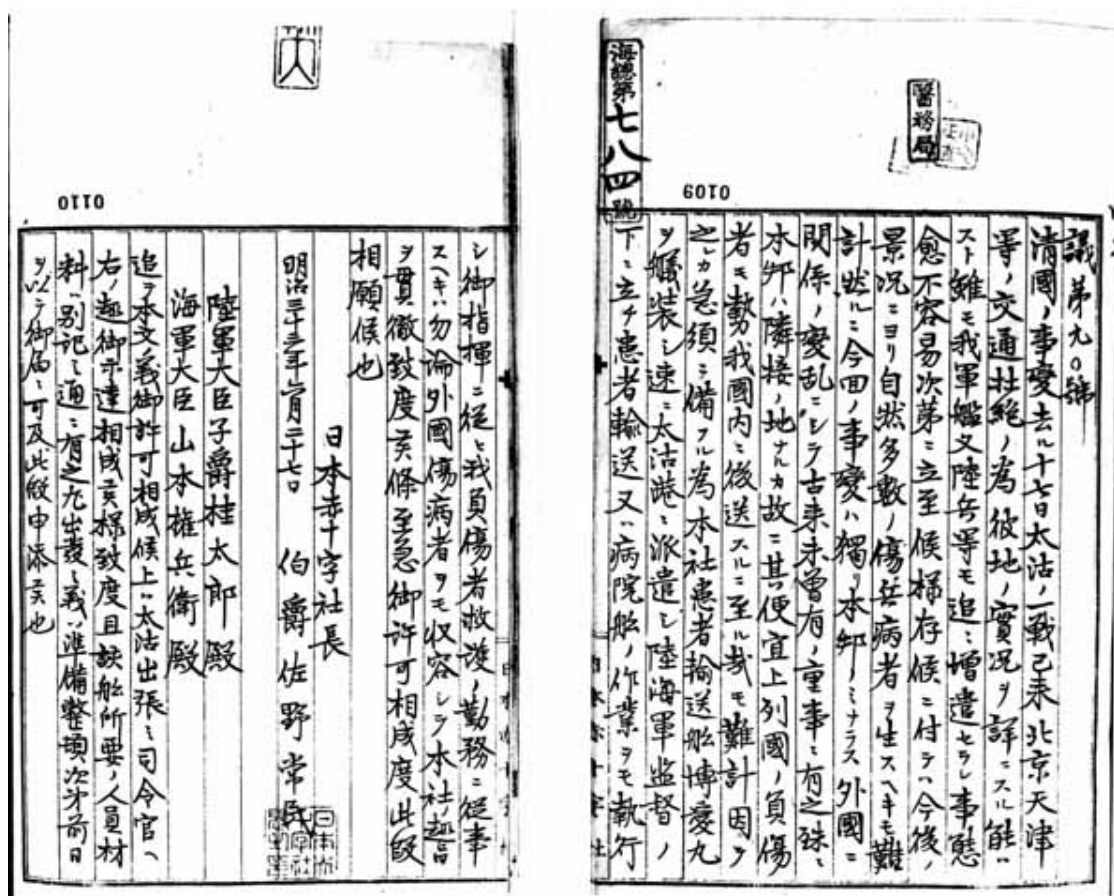 醫務局
海總第七八四號
0109
議第九〇號
清國ノ事變去ル十七日太沽ノ一戰已来北京天津
等ノ交通杜絶ノ為彼地ノ實況ヲ詳ニスル能ハ
スト雖モ我軍艦又陸兵等モ追ニ増遣セラレ事態
愈不容易次第ニ立至候様存候ニ付テハ今後ノ
景況ニヨリ自然多數ノ傷兵病者ヲ生スヘキモ難
計然ルニ今回ノ事變ハ獨リ本邦ノミナラス外國ニ
関係ノ變乱ニシテ古来未曾有ノ重事ニ有之殊ニ
本邦ハ隣接ノ地ナルカ故ニ其便宜上列國ノ負傷
者モ勢我國内ニ後送スルニ至ル哉モ難計因テ
之レカ急須ニ備フル為本社患者輸送船博愛丸
ヲ艤装シ速ニ太沽港ニ派遣シ陸海軍監督ノ
下ニ立チ患者輸送又ハ病院船ノ作業ヲモ執行
0110
シ御指揮ニ従ヒ我負傷者救護ノ勤務ニ從事
スヘキハ勿論外國傷病者ヲモ収容シテ本社ノ趣旨
ヲ貫徹致度候條至急御許可相成度此段
相願候也
日本赤十字社長
明治三十三年六月二十七日 伯爵佐野常民
陸軍大臣子爵桂太郎殿
海軍大臣山本權兵衛殿
追テ本文ノ義御許可相成候上ハ太沽出張ノ司令官ヘ
右ノ趣御示達相成候様致度且該船所要ノ人員材
料ハ別記ノ通ニ有之尤出發ノ義ハ準備整頓次第前日
ヲ以テ御届ニ可及此段申添候也